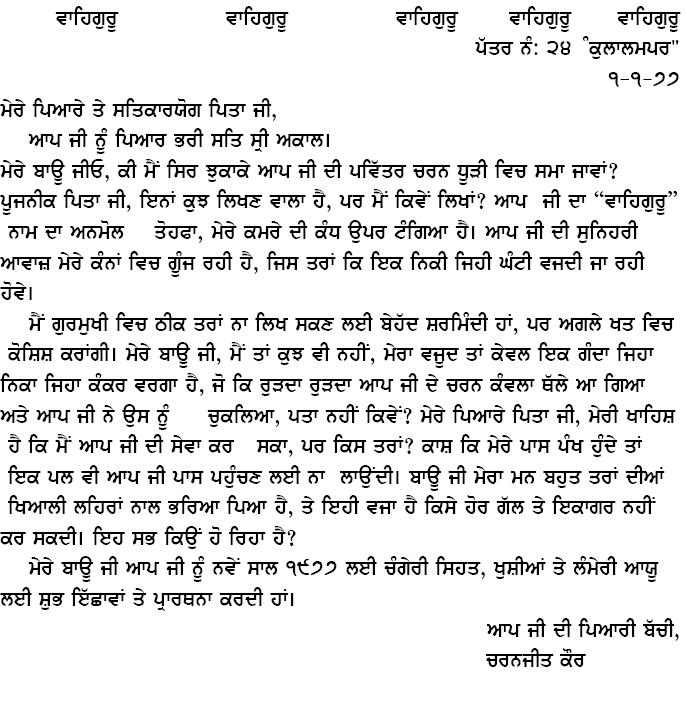 ਵਾਹਿਗੁਰੂ ਵਾਹਿਗੁਰੂ ਵਾਹਿਗੁਰੂ ਵਾਹਿਗੁਰੂ ਵਾਹਿਗੁਰੂ
ਪੱਤਰ ਨੰ: ੨੪ ੰਕੁਲਾਲਮਪਰ"
੧-੧-੭੭
ਮੇਰੇ ਪਿਆਰੇ ਤੇ ਸਤਿਕਾਰਯੋਗ ਪਿਤਾ ਜੀ,
ਆਪ ਜੀ ਨੂੰ ਪਿਆਰ ਭਰੀ ਸਤਿ ਸ੍ਰੀ ਅਕਾਲ।
ਮੇਰੇ ਬਾਊ ਜੀਓ, ਕੀ ਮੈਂ ਸਿਰ ਝੁਕਾਕੇ ਆਪ ਜੀ ਦੀ ਪਵਿੱਤਰ ਚਰਨ ਧੂੜੀ ਵਿਚ ਸਮਾ ਜਾਵਾਂ?
ਪੂਜਨੀਕ ਪਿਤਾ ਜੀ, ਇਨਾਂ ਕੁਝ ਲਿਖਣ ਵਾਲਾ ਹੈ, ਪਰ ਮੈਂ ਕਿਵੇਂ ਲਿਖਾਂ? ਆਪ ਜੀ ਦਾ “ਵਾਹਿਗੁਰੂ”
ਨਾਮ ਦਾ ਅਨਮੋਲ ਤੋਹਫਾ, ਮੇਰੇ ਕਮਰੇ ਦੀ ਕੰਧ ਉਪਰ ਟੰਗਿਆ ਹੈ। ਆਪ ਜੀ ਦੀ ਸੁਨਿਹਰੀ
ਆਵਾਜ਼ ਮੇਰੇ ਕੰਨਾਂ ਵਿਚ ਗੂੰਜ ਰਹੀ ਹੈ, ਜਿਸ ਤਰਾਂ ਕਿ ਇਕ ਨਿਕੀ ਜਿਹੀ ਘੰਟੀ ਵਜਦੀ ਜਾ ਰਹੀ
ਹੋਵੇ।
ਮੈਂ ਗੁਰਮੁਖੀ ਵਿਚ ਠੀਕ ਤਰਾਂ ਨਾ ਲਿਖ ਸਕਣ ਲਈ ਬੇਹੱਦ ਸ਼ਰਮਿੰਦੀ ਹਾਂ, ਪਰ ਅਗਲੇ ਖਤ ਵਿਚ
ਕੋਸ਼ਿਸ਼ ਕਰਾਂਗੀ। ਮੇਰੇ ਬਾਊ ਜੀ, ਮੈਂ ਤਾਂ ਕੁਝ ਵੀ ਨਹੀਂ, ਮੇਰਾ ਵਜੂਦ ਤਾਂ ਕੇਵਲ ਇਕ ਗੰਦਾ ਜਿਹਾ
ਨਿਕਾ ਜਿਹਾ ਕੰਕਰ ਵਰਗਾ ਹੈ, ਜੋ ਕਿ ਰੁੜਦਾ ਰੁੜਦਾ ਆਪ ਜੀ ਦੇ ਚਰਨ ਕੰਵਲਾ ਥੱਲੇ ਆ ਗਿਆ
ਅਤੇ ਆਪ ਜੀ ਨੇ ਉਸ ਨੂੰ ਚੁਕਲਿਆ, ਪਤਾ ਨਹੀਂ ਕਿਵੇਂ? ਮੇਰੇ ਪਿਆਰੇ ਪਿਤਾ ਜੀ, ਮੇਰੀ ਖਾਹਿਸ਼
ਹੈ ਕਿ ਮੈਂ ਆਪ ਜੀ ਦੀ ਸੇਵਾ ਕਰ ਸਕਾ, ਪਰ ਕਿਸ ਤਰਾਂ? ਕਾਸ਼ ਕਿ ਮੇਰੇ ਪਾਸ ਪੰਖ ਹੁੰਦੇ ਤਾਂ
ਇਕ ਪਲ ਵੀ ਆਪ ਜੀ ਪਾਸ ਪਹੁੰਚਣ ਲਈ ਨਾ ਲਾਉਂਦੀ। ਬਾਊ ਜੀ ਮੇਰਾ ਮਨ ਬਹੁਤ ਤਰਾਂ ਦੀਆਂ
ਖਿਆਲੀ ਲਹਿਰਾਂ ਨਾਲ ਭਰਿਆ ਪਿਆ ਹੈ, ਤੇ ਇਹੀ ਵਜਾ ਹੈ ਕਿਸੇ ਹੋਰ ਗੱਲ ਤੇ ਇਕਾਗਰ ਨਹੀਂ
ਕਰ ਸਕਦੀ। ਇਹ ਸਭ ਕਿਉਂ ਹੋ ਰਿਹਾ ਹੈ?
ਮੇਰੇ ਬਾਊ ਜੀ ਆਪ ਜੀ ਨੂੰ ਨਵੇਂ ਸਾਲ ੧੯੭੭ ਲਈ ਚੰਗੇਰੀ ਸਿਹਤ, ਖੁਸ਼ੀਆਂ ਤੇ ਲੰਮੇਰੀ ਆਯੂ
ਲਈ ਸ਼ੁਭ ਇੱਛਾਵਾਂ ਤੇ ਪ੍ਰਾਰਥਨਾ ਕਰਦੀ ਹਾਂ।
ਆਪ ਜੀ ਦੀ ਪਿਆਰੀ ਬੱਚੀ,
ਚਰਨਜੀਤ ਕੌਰ